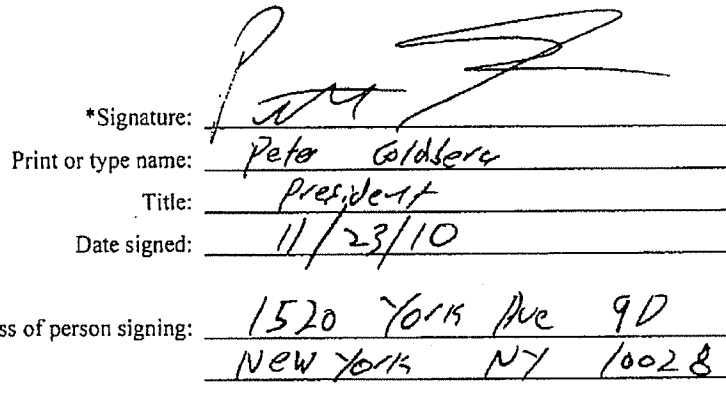 *Signature:
Print or type name: Peter Goldberg
Title: President
Date signed: 11/23/10
ss of person signing: 1520 York Ave 9D
New York NY 10028